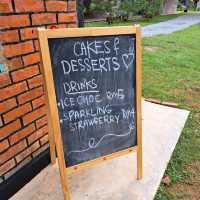 CAKES &
DESSERTS ♡
DRINKS
• ICE CHOC RM5
• SPARKLING
STRAWBERRY